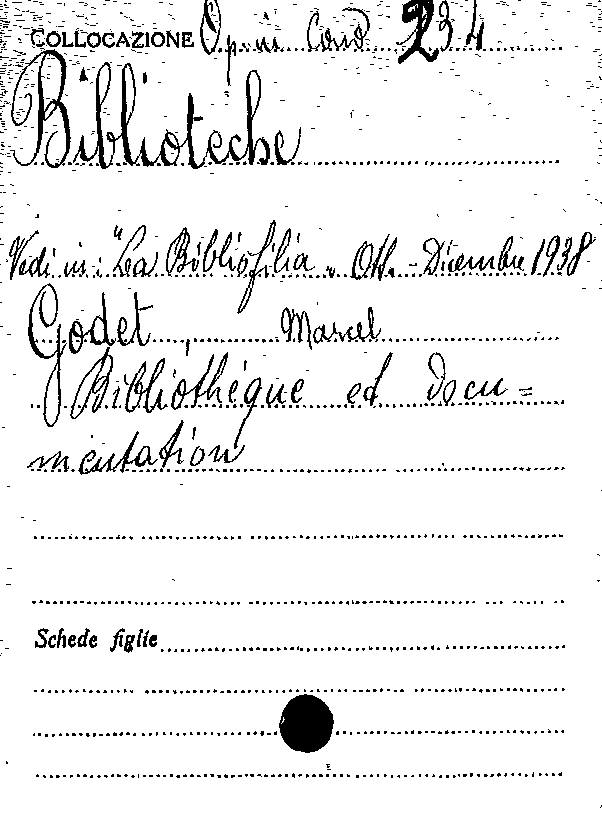 COLLOCAZIONE Op. in Cons 234
Biblioteche
Vedi in: "La Bibliofilia" Ott. - Dicembre 1938
Godet, Marcel
Bibliothéque et docu=
mentation
Schede figlie